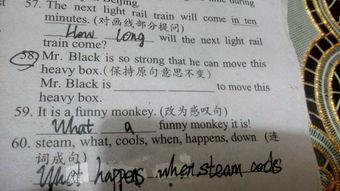 57. The next light rail train will come in ten
minutes. (对画线部分提问)
How long will the next light rail
train come?
58. Mr. Black is so strong that he can move this
heavy box. (保持原句意思不变)
Mr. Black is ________ to move this
heavy box.
59. It is a funny monkey. (改为感叹句)
What a funny monkey it is!
60. steam, what, cools, when, happens, down (连
词成句)
What happens when steam cools